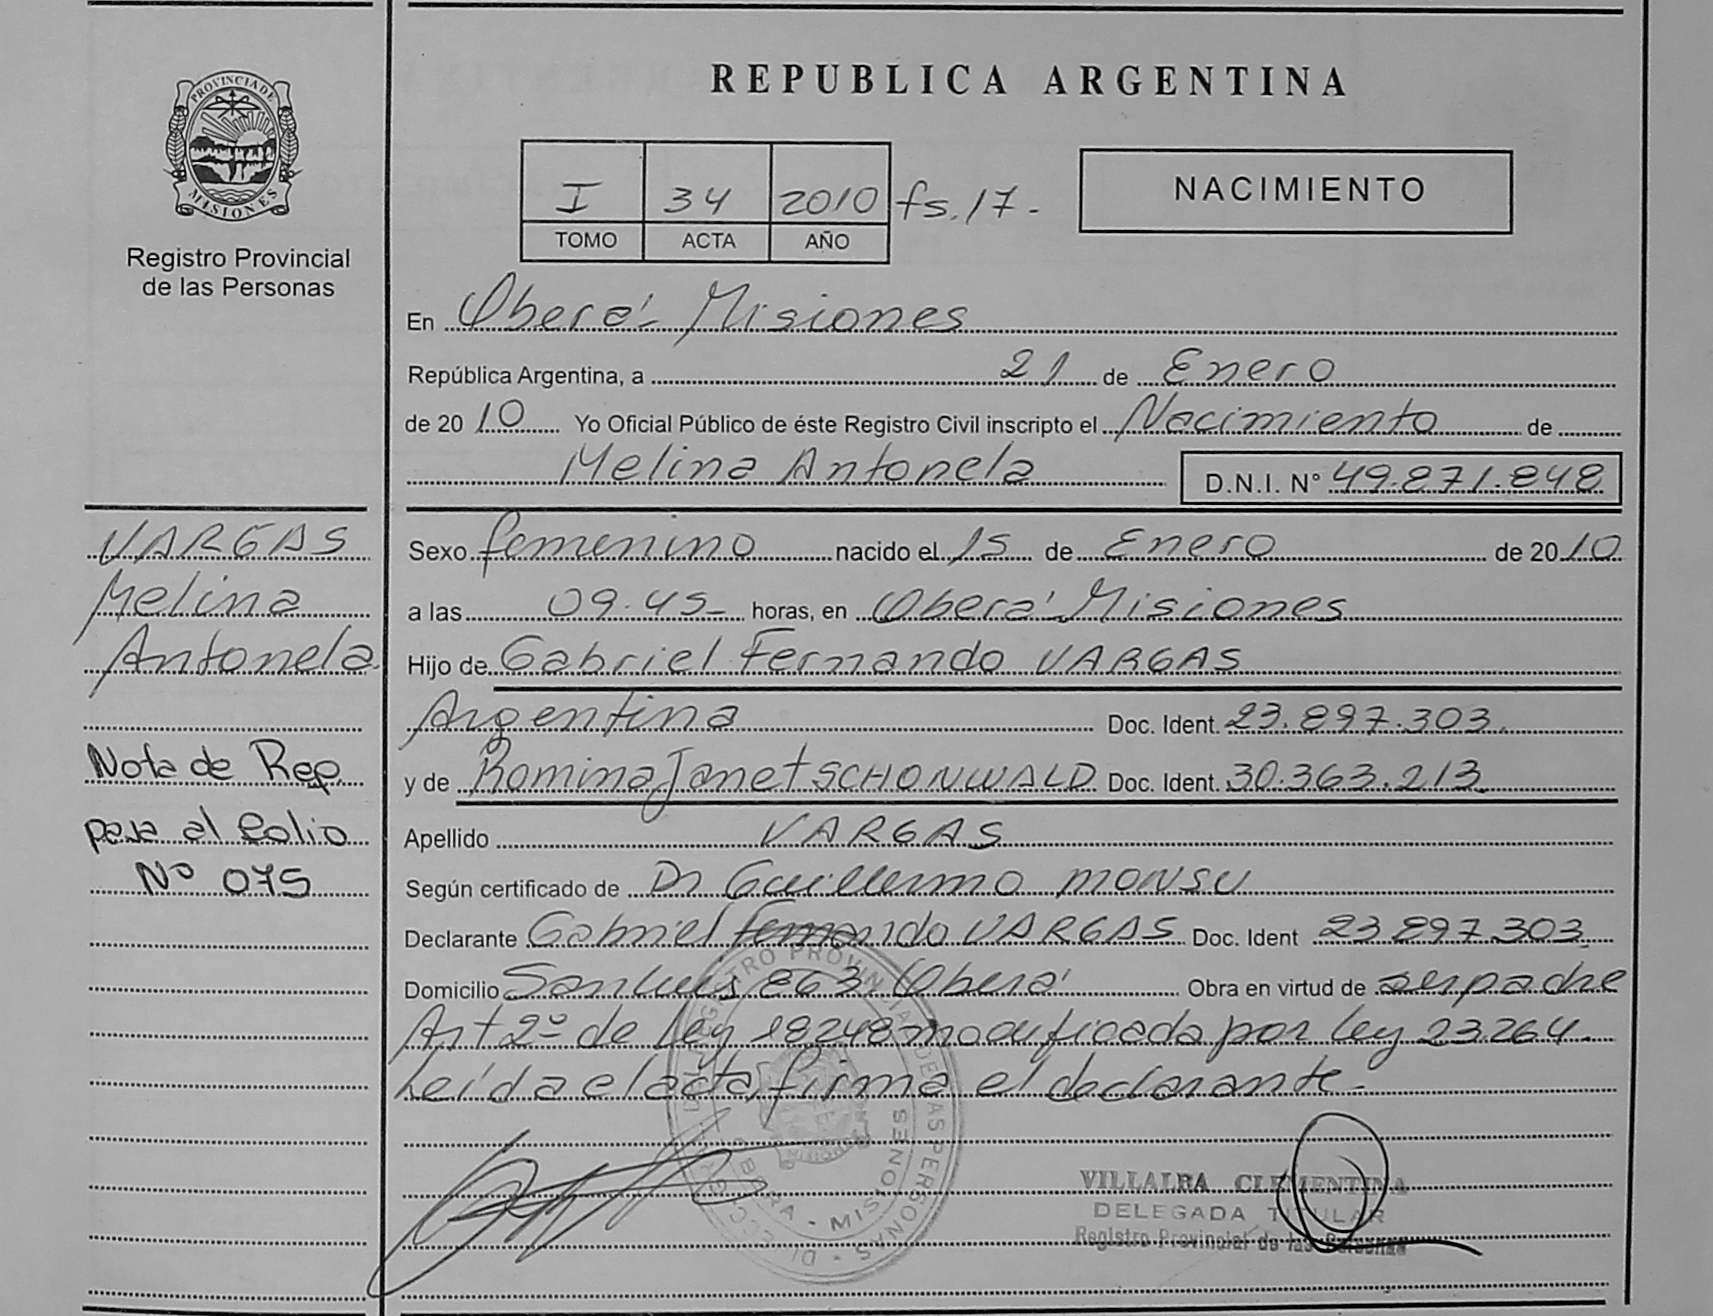 PROVINCIA DE
MISIONES
Registro Provincial
de las Personas
VARGAS
Melina
Antonela
Nota de Rep.
pasa al folio
Nº 075
REPUBLICA ARGENTINA
I 34 2010 fs. 17.-
TOMO ACTA AÑO
NACIMIENTO
En Oberá - Misiones
República Argentina, a 21 de Enero
de 2010 Yo Oficial Público de éste Registro Civil inscripto el Nacimiento de
Melina Antonela D.N.I. N° 49.871.848
Sexo femenino nacido el 15 de Enero de 2010
a las 09.45- horas, en Oberá - Misiones
Hijo de Gabriel Fernando VARGAS
Argentina Doc. Ident. 23.897.303.
y de Romina Janet SCHONWALD Doc. Ident. 30.363.213
Apellido VARGAS
Según certificado de Dr Guillermo MONSU
Declarante Gabriel Fernando VARGAS Doc. Ident 23.897.303
Domicilio San Luis 863 Oberá Obra en virtud de ser padre
Art 2º de Ley 18248 modificada por Ley 23.264.-
Leída el acta, firma el declarante.-
REGISTRO PROVINCIAL DE LAS PERSONAS
OBERA - MISIONES
VILLALBA CLEMENTINA
DELEGADA TITULAR
Registro Provincial de las Personas